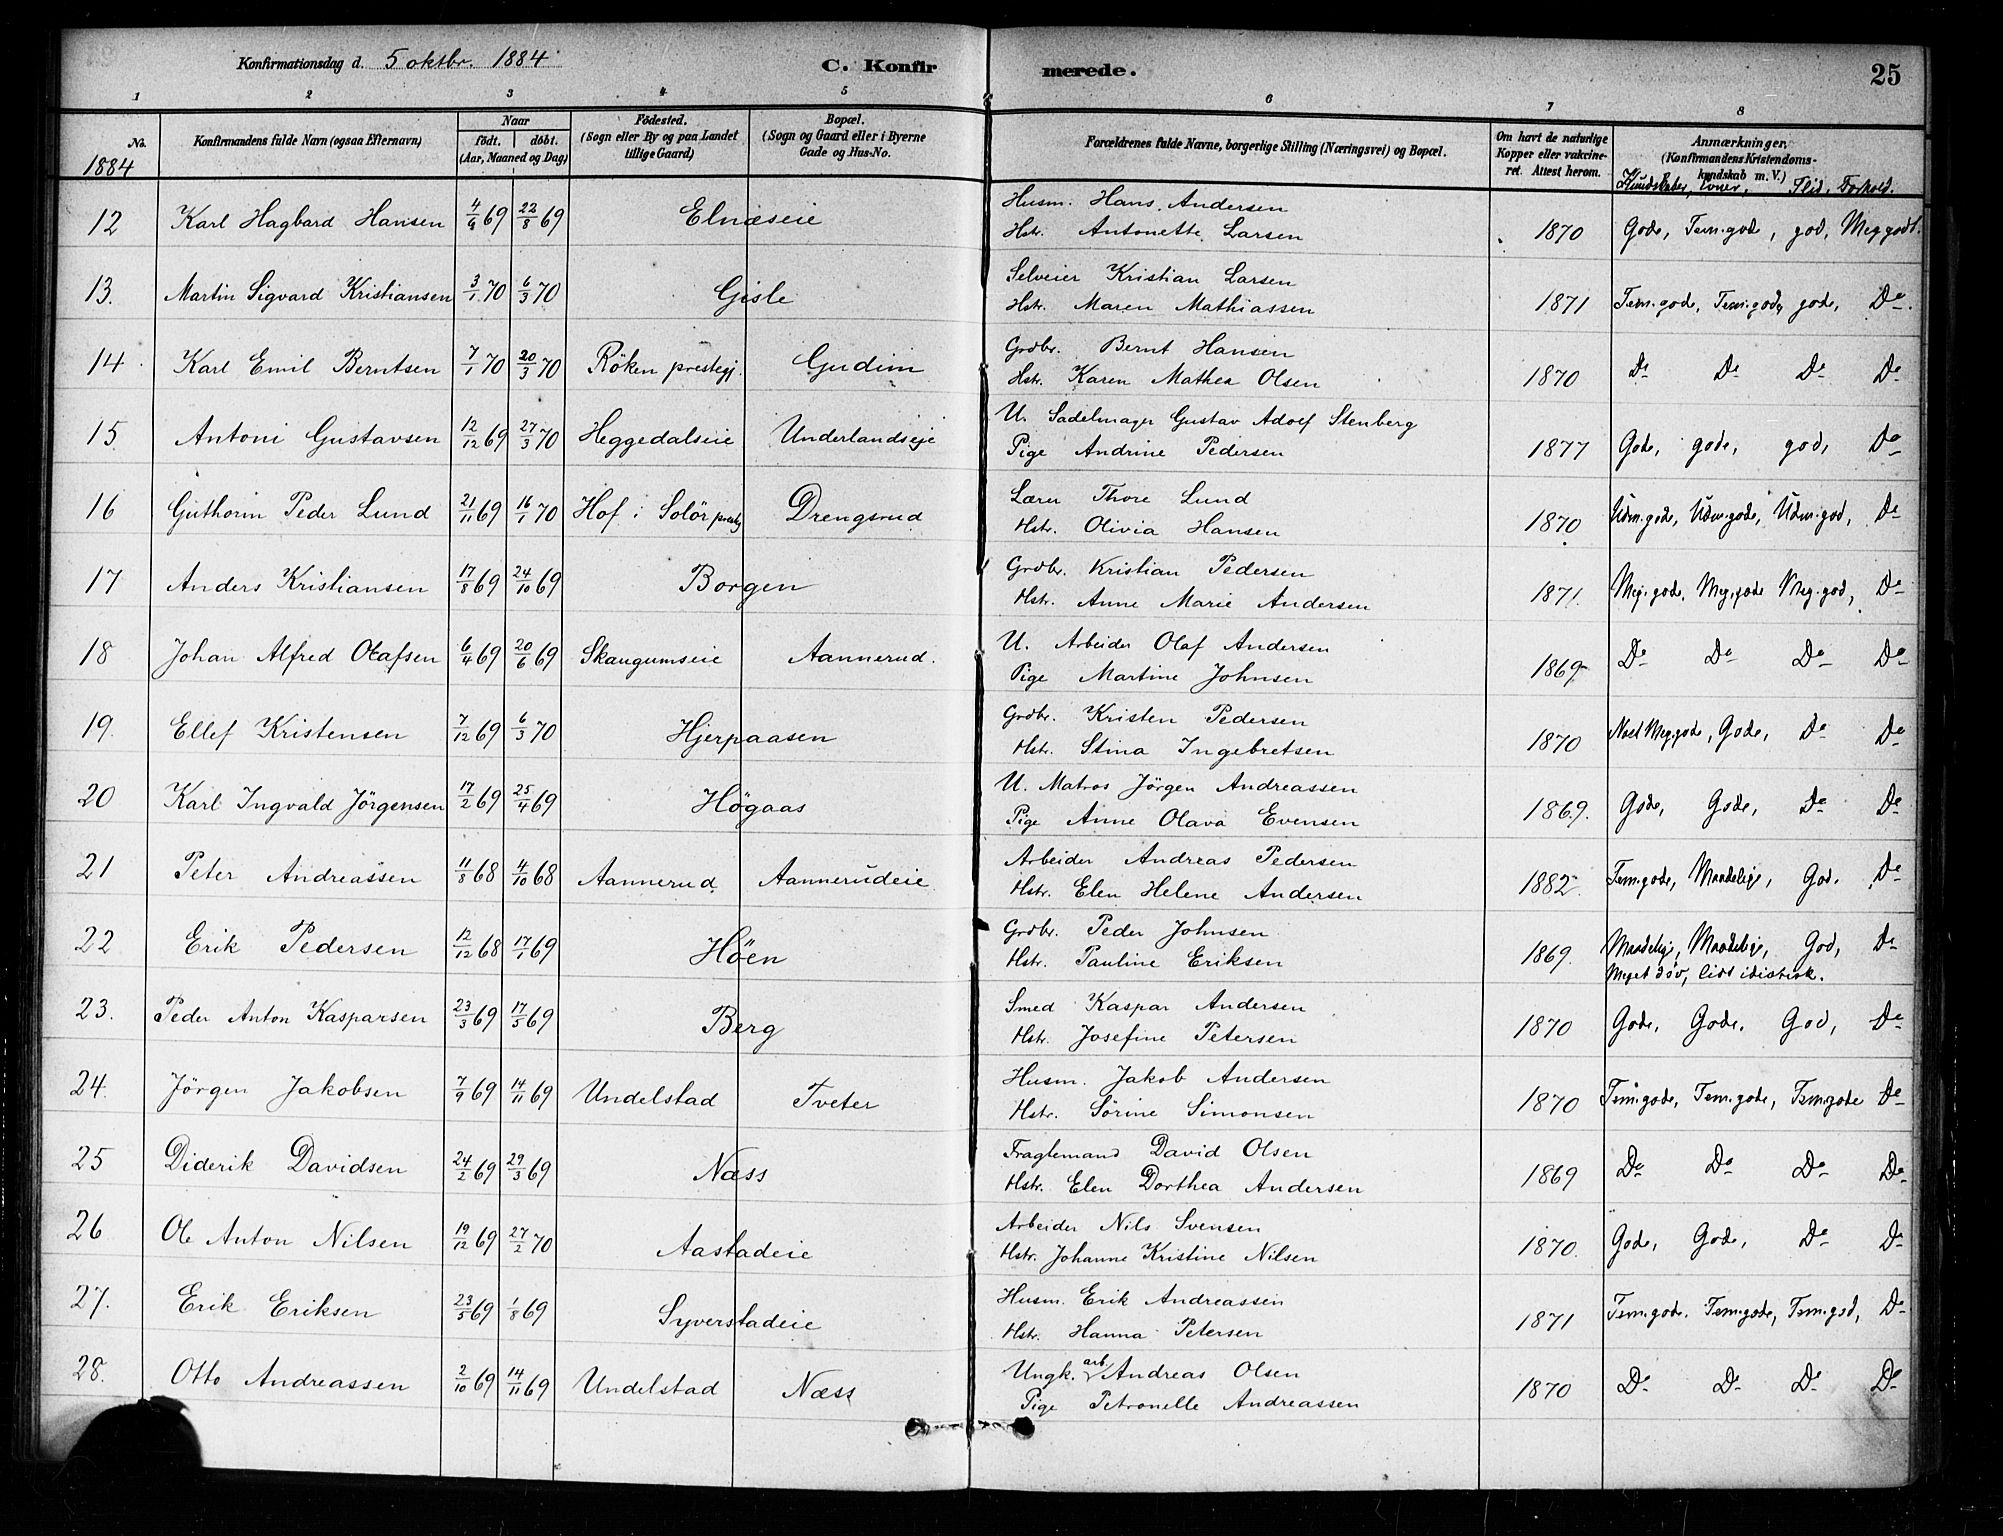 Konfirmationsdag d. 5 oktbr. 1884 C. Konfirmerede. 25
1 2 3 4 5 6 7 8
No. Konfirmandens fulde Navn (ogsaa Efternavn) Naar födt. döbt. (Aar, Maaned og Dag) Födested. (Sogn eller By og paa Landet tillige Gaard) Bopæl. (Sogn og Gaard eller i Byerne Gade og Hus-No. Forældrenes fulde Navne, borgerlige Stilling (Næringsvei) og Bopæl. Om havt de naturlige Kopper eller vakcineret. Attest herom. Anmærkninger, (Konfirmandens Kristendomskundskab m. V.)
1884 Kundskaber, Evner, Flid, Forhold.
12 Karl Hagbard Hansen 4/9 69 22/8 69 Elnæseie Husm. Hans Andersen
Hstr. Antonette Larsen 1870 Gode, Tem. gode, god, Meg godt.
13. Martin Sigvard Kristiansen 3/1 70 6/3 70 Gisle Selveier Kristian Larsen
Hstr. Maren Mathiassen 1871 Tem. gode, Tem. gode, gode, Do
14 Karl Emil Berntsen 7/1 70 20/3 70 Röken prestegj. Gudim Grdbr. Bernt Hansen
Hstr. Karen Mathea Olsen 1870 Do Do Do Do
15 Antoni Gustavsen 12/12 69 27/3 70 Heggedalseie Underlandseje U. Sadelmager Gustav Adolf Stenberg
Pige Andrine Pedersen 1877 Gode, gode, god, Do
16 Guthorm Peder Lund 21/11 69 16/1 70 Hof i Solör prestg Drengsrud Lærer Thore Lund
Hstr. Olivia Hansen 1870 Udm. gode, Udm. gode, Udm. god, Do
17 Anders Kristiansen 17/8 69 24/10 69 Borgen Grdbr. Kristian Pedersen
Hstr. Anne Marie Andersen 1871. Meg. gode. Meg. gode Meg. god, Do
18 Johan Alfred Olafsen 6/4 69 20/6 69 Skaugumseie Aannerud. U. Arbeider Olaf Andersen
Pige Martine Johnsen 1869 Do Do Do Do
19. Ellef Kristensen 7/12 69 6/3 70 Hjerpaasen Grdbr. Kristen Pedersen
Hstr. Stina Ingebretsen 1870 Noel Meg. gode, Gode, Do Do
20 Karl Ingvald Jörgensen 17/2 69 25/4 69 Högaas U. Matros Jörgen Andreassen
Pige Anne Olava Evensen 1869. Gode, Gode, Do Do
21 Peter Andreassen 11/8 68 4/10 68 Aannerud Aannerudeie Arbeider Andreas Pedersen
Hstr. Elen Helene Andersen 1882 Tem. gode, Maadelige, God. Do
22 Erik Pedersen 12/12 68 17/1 69 Höen Grdbr. Peder Johnsen
Hstr. Pauline Eriksen 1869. Maadelige, Maadelige, God, Do
Meget döv, lidt idiotisk.
23. Peder Anton Kasparsen 23/3 69 17/5 69 Berg Smed Kaspar Andersen
Hstr. Josefine Petersen 1870 Gode, Gode. God, Do
24. Jörgen Jakobsen 7/9 69 14/11 69 Undelstad Tveter Husm. Jakob Andersen
Hstr. Sörine Simonsen 1870 Tem. gode, Tem. gode, Tem. gode Do
25 Diderik Davidsen 24/2 69 29/3 69 Næss Fragtemand David Olsen
Hstr. Elen Dorthea Andersen 1869 Do Do Do Do
26 Ole Anton Nilsen 19/12 69 27/2 70 Aastadeie Arbeider Nils Svensen
Hstr. Johanne Kristine Nilsen 1870. Gode, Gode, Do Do
27. Erik Eriksen 23/5 69 1/8 69 Syverstadeie Husm. Erik Andreassen
Hstr. Hanna Petersen 1871 Tem. gode. Tem. gode, Tem. god, Do
28. Otto Andreassen 2/10 69 14/11 69 Undelstad Næss Ungk. arb. Andreas Olsen
Pige Petronelle Andreassen 1870 Do Do Do Do